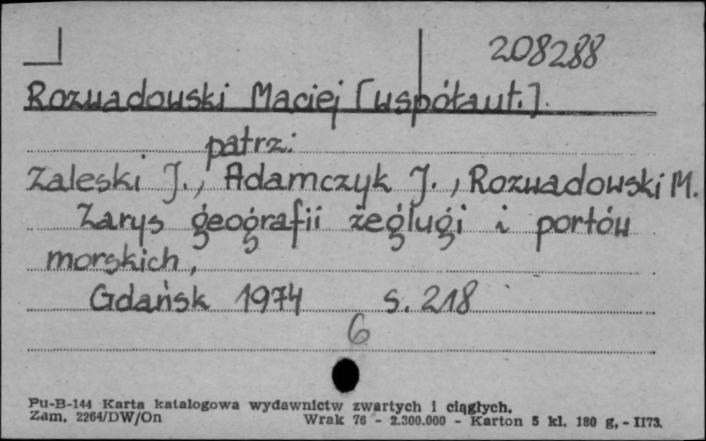 208288
Rozwadowski Maciej [współaut.].
patrz:
Zaleski J., Adamczyk J., Rozwadowski M.
Zarys geografii żeglugi i portów
morskich,
Gdańsk 1974 s. 218
6
Pu-B-144 Karta katalogowa wydawnictw zwartych i ciągłych.
Zam. 2264/DW/On Wrak 76 - 2.300.000 - Karton 5 kl. 180 g, - II73.